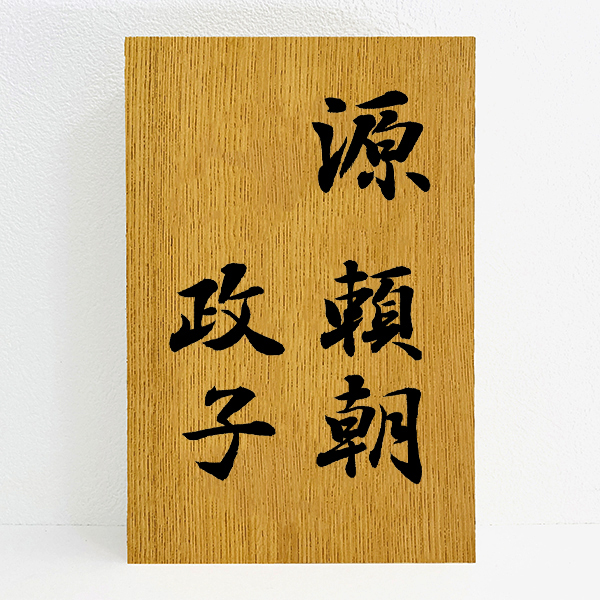 源 頼朝
政子